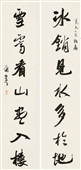 冰銷見水多於地
雪霽看山盡入樓